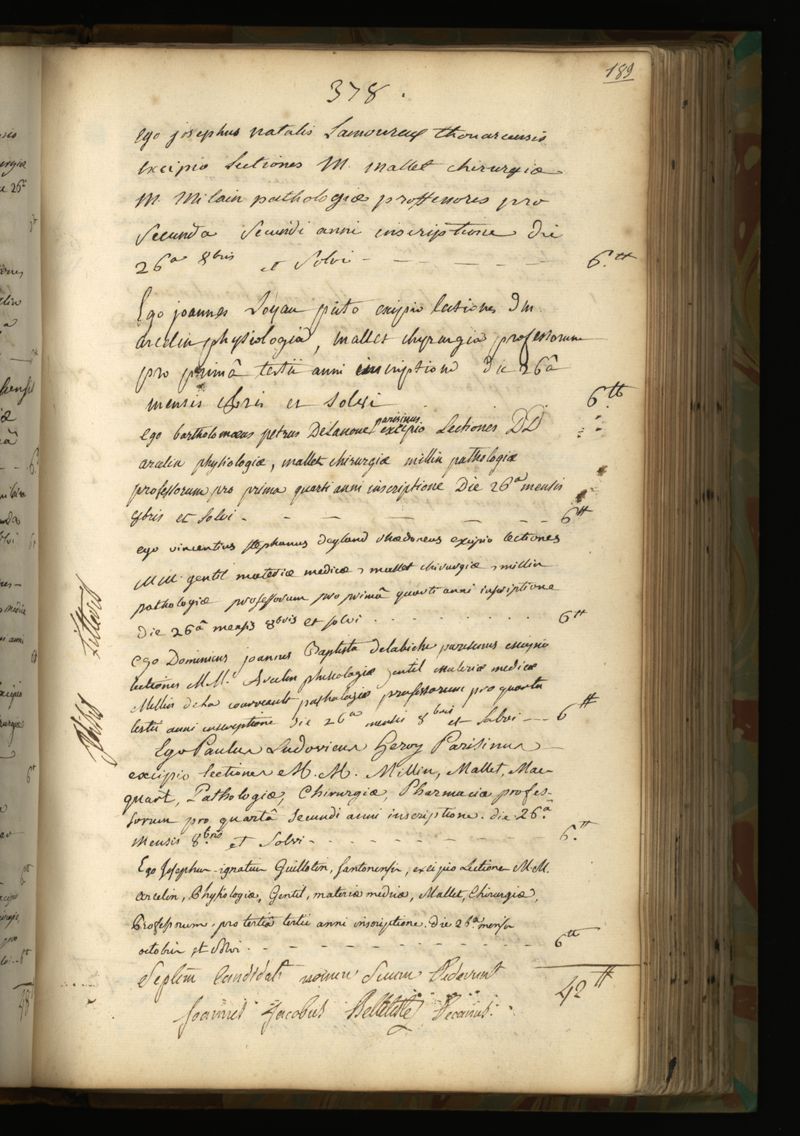 189
378.
Ego josephus natalis Lamoureux thouarcensis
excipio Lectiones M. mallet chirurgiæ
M. Milain pathologiæ professores pro
Secunda Secundi anni inscriptione die
26a 8bris et Solvi - - - - - - 6.tt
Ego joannes Loyau picto excipio lectiones dm
arcelin physiologiâ, mallet chyrurgia professorum
pro primâ tertii anni inscriptione die 26â
mensis 8bris et solvi . 6.tt
Ego bartholomæus petrus DeLanoue parisinus excipio Lectiones DD
arcelin physiologiæ, mallet chirurgiæ millin pathologiæ
professorum pro prima quarti anni inscriptione Die 26a mensis
8bris et solvi - - - - - - 6tt
ego vincentius stephanus excipio lectiones
MM. gentil materiæ medicæ, mallet chirurgiæ, millin
pathologiæ professorum pro primâ quarti anni inscriptione
die 26â mensis 8bris et solvi . . . . . . . . 6tt
ego Dominicus joannes Baptista Delabiche parisinus excipio
lectiones MM. Arcelin phisiologiæ gentil materiæ medicæ
Millin de La courveault pathologiæ professorum pro quarta
tertii anni inscriptione die 26a mensis 8bris et Solvi --- 6tt
Ego Paulus Ludovicus Hervy Parisinus
excipio lectiones M. M. Millin, Mallet, Mac-
quart, Pathologiæ, Chirurgiæ, Pharmaciæ profes-
sorum pro quartâ secundi anni inscriptione. die 26.a
mensis 8.bris et Solvi - . . . . . 6.tt
Ego Josephus-ignatius Guillotin, Santonensis, excipio Lectiones MM.
arcelin, Physiologiæ, Gentil, materiæ medicæ, Mallet, Chirurgiæ,
Professorum. pro tertiâ tertii anni inscriptione. die 26.a mensis
octobris et solvi . - - - - - - 6tt
Septem Candidati nomen Suum Dederunt 42tt
Joannes Jacobus Belleteste Decanus.